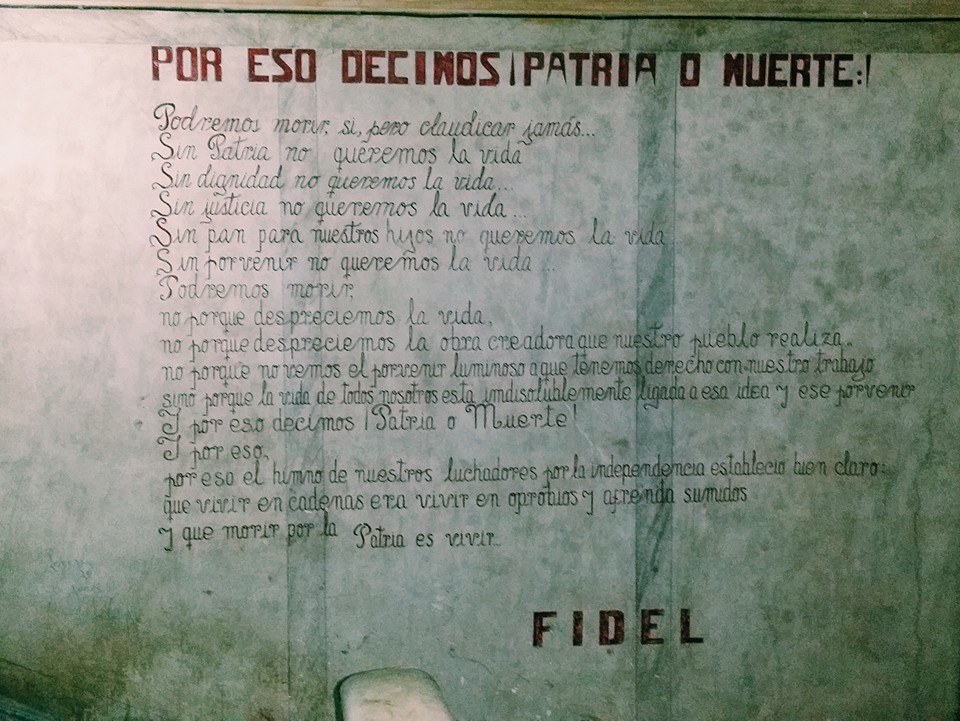 POR ESO DECIMOS ¡PATRIA O MUERTE:!
Podremos morir, si, pero claudicar jamás...
Sin Patria no queremos la vida
Sin dignidad no queremos la vida...
Sin justicia no queremos la vida...
Sin pan para nuestros hijos no queremos la vida
Sin porvenir no queremos la vida...
Podremos morir,
no porque despreciemos la vida,
no porque despreciemos la obra creadora que nuestro pueblo realiza.
no porque no vemos el porvenir luminoso a que tenemos derecho con nuestro trabajo
sino porque la vida de todos nosotros esta indisolublemente ligada a esa idea y ese porvenir
Y por eso decimos ¡Patria o Muerte!
Y por eso,
por eso el himno de nuestros luchadores por la independencia establecio bien claro:
que vivir en cadenas era vivir en oprobios y afrenta sumidos
y que morir por la Patria es vivir...
FIDEL